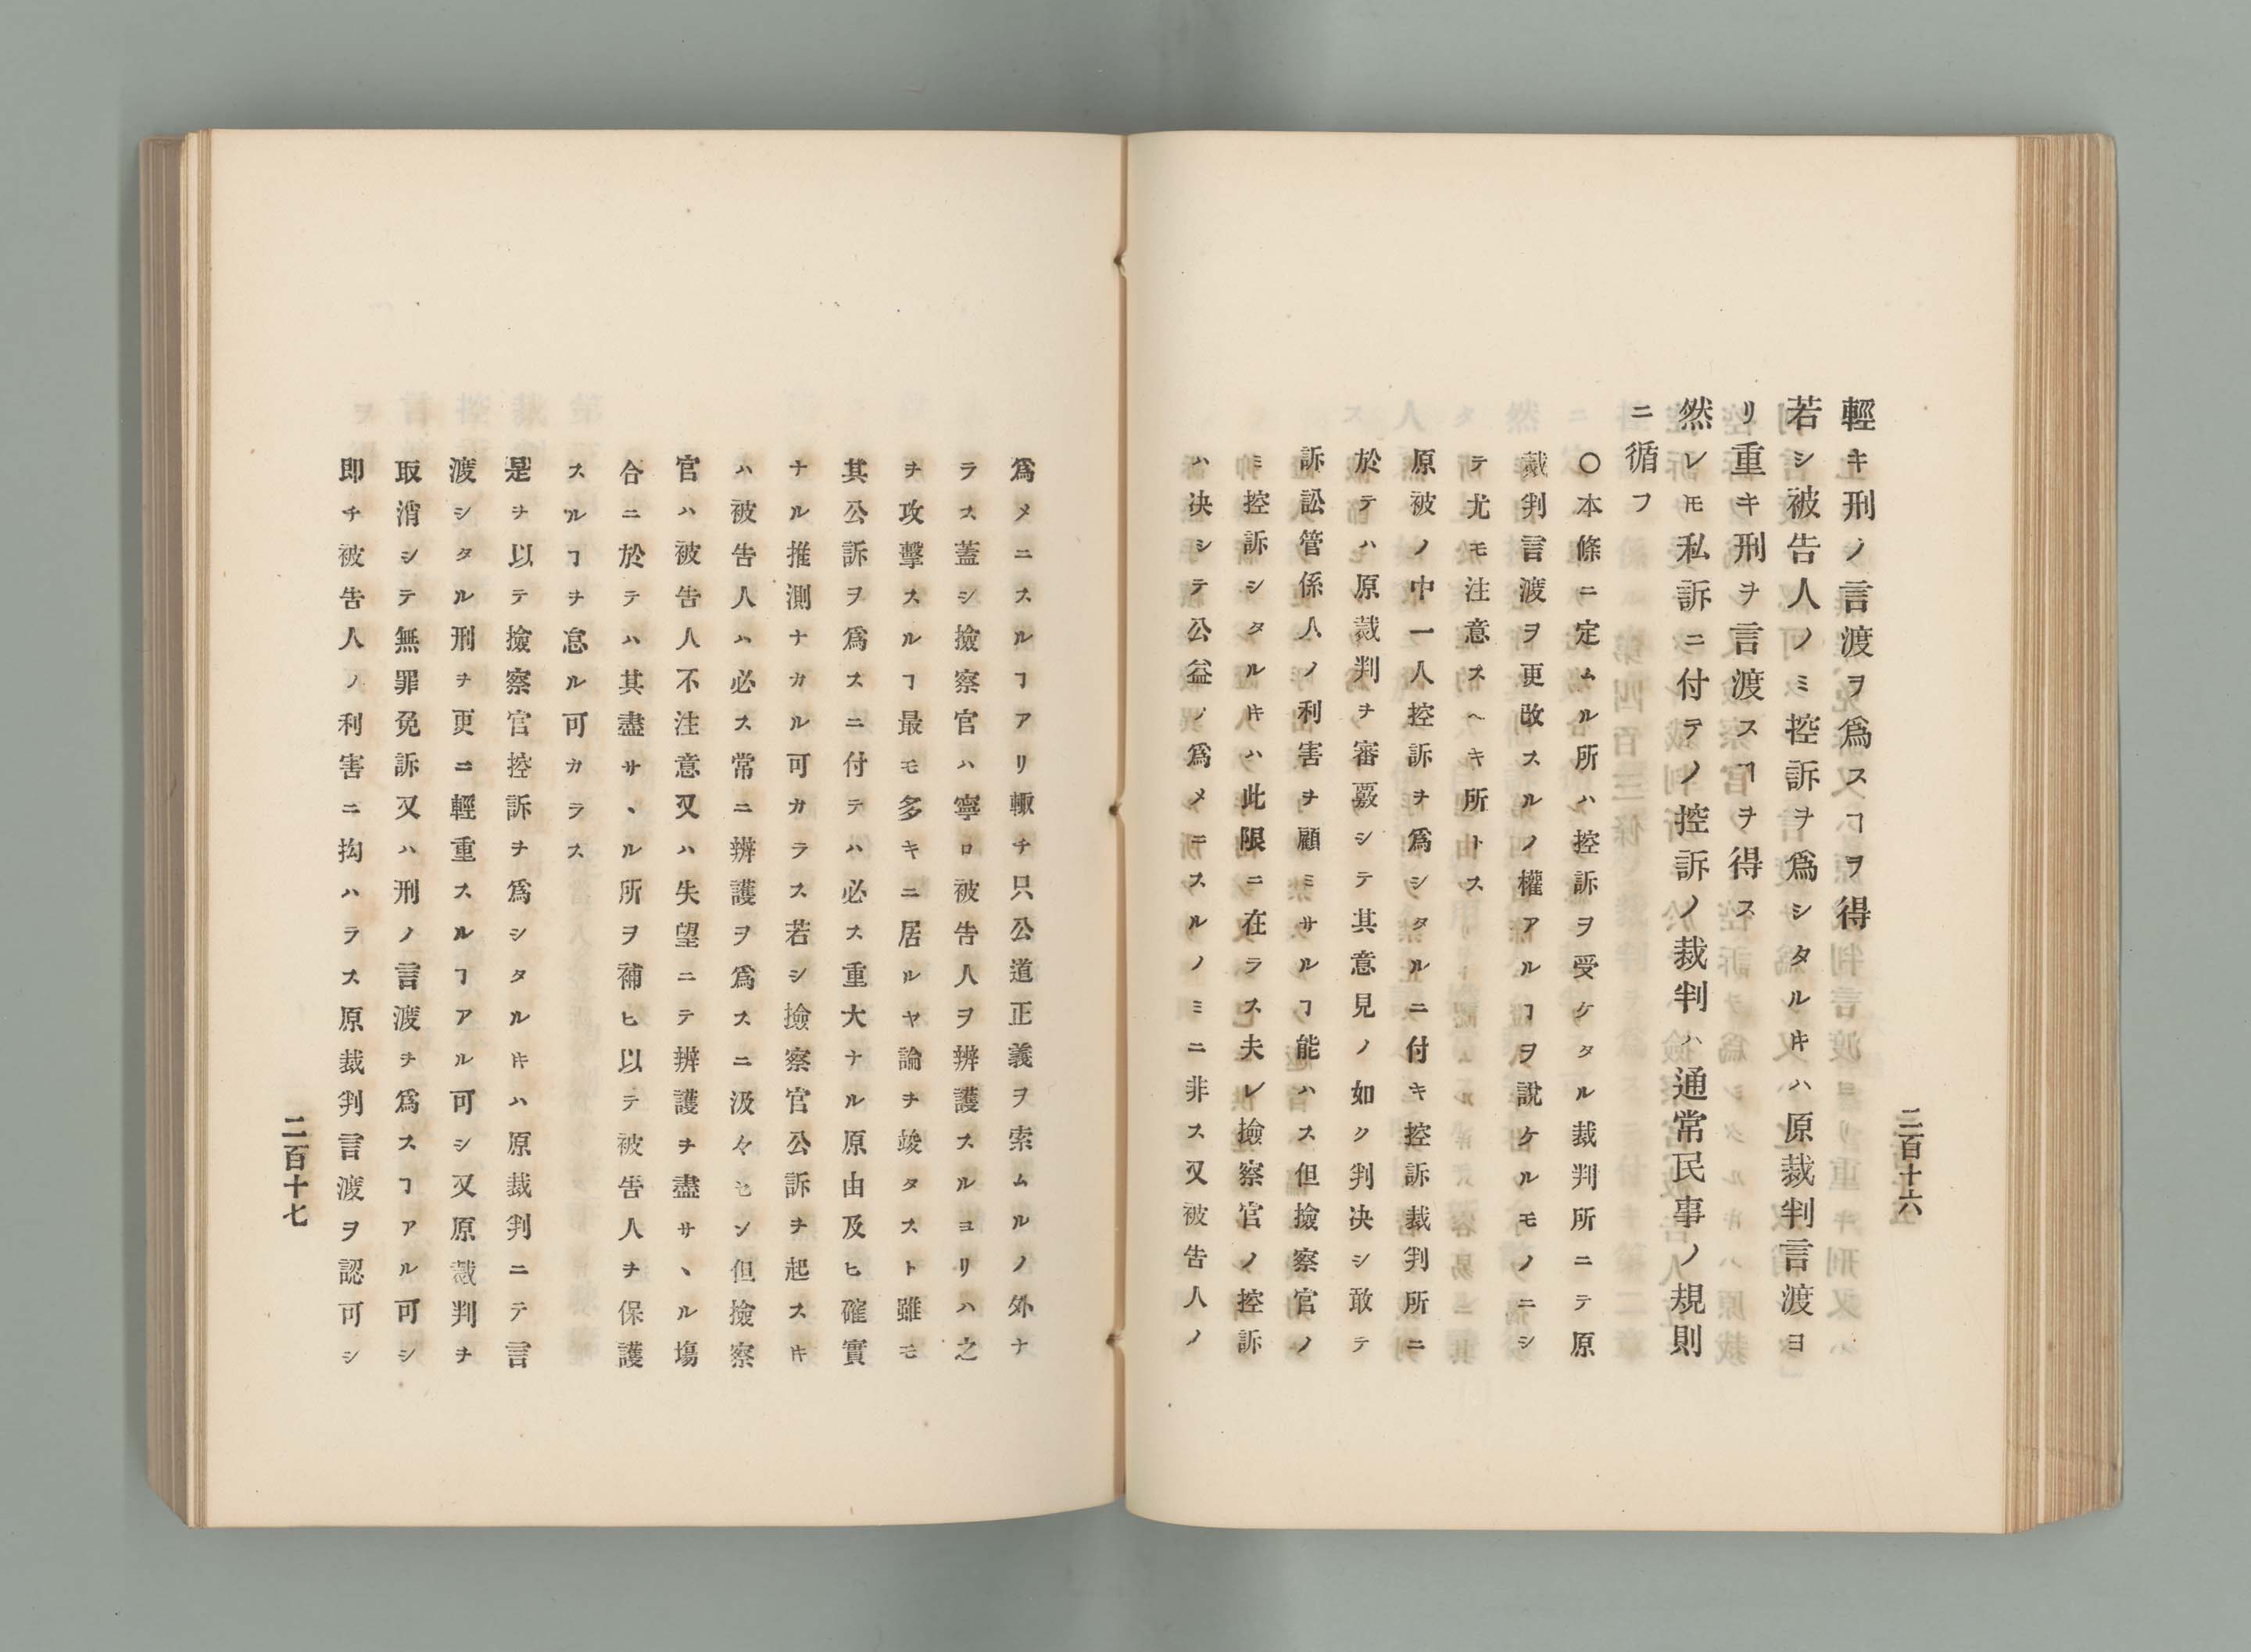 二百十六
輕キ刑ノ言渡ヲ爲スヿヲ得
若シ被告人ノミ控訴ヲ爲シタルキハ原裁判言渡ヨ
リ重キ刑ヲ言渡スヿヲ得ス
然レ𪜈私訴ニ付テノ控訴ノ裁判ハ通常民事ノ規則
ニ循フ
〇本條ニ定ムル所ハ控訴ヲ受ケタル裁判所ニテ原
裁判言渡ヲ更改スルノ權アルヿヲ説ケルモノニシ
テ尤モ注意スヘキ所トス
原被ノ中一人控訴ヲ爲シタルニ付キ控訴裁判所ニ
於テハ原裁判ヲ審覈シテ其意見ノ如ク判决シ敢テ
訴訟管係人ノ利害ヲ顧ミサルヿ能ハス但撿察官ノ
ミ控訴シタルキハ此限ニ在ラス夫レ撿察官ノ控訴
ハ决シテ公益ノ爲メニスルノミニ非ス又被告人ノ
爲メニスルヿアリ輙チ只公道正義ヲ索ムルノ外ナ
ラス蓋シ撿察官ハ寧ロ被告人ヲ辨護スルヨリハ之
ヲ攻擊スルヿ最モ多キニ居ルヤ論ヲ竢タスト雖モ
其公訴ヲ爲スニ付テハ必ス重大ナル原由及ヒ確實
ナル推測ナカル可カラス若シ撿察官公訴ヲ起スキ
ハ被告人ハ必ス常ニ辨護ヲ爲スニ汲々セン但撿察
官ハ被告人不注意又ハ失望ニテ辨護ヲ盡サヽル塲
合ニ於テハ其盡サヽル所ヲ補ヒ以テ被告人ヲ保護
スルヿヲ怠ル可カラス
是ヲ以テ撿察官控訴ヲ爲シタルキハ原裁判ニテ言
渡シタル刑ヲ更ニ輕重スルヿアル可シ又原裁判ヲ
取消シテ無罪免訴又ハ刑ノ言渡ヲ爲スヿアル可シ
即チ被告人ノ利害ニ拘ハラス原裁判言渡ヲ認可シ
二百十七